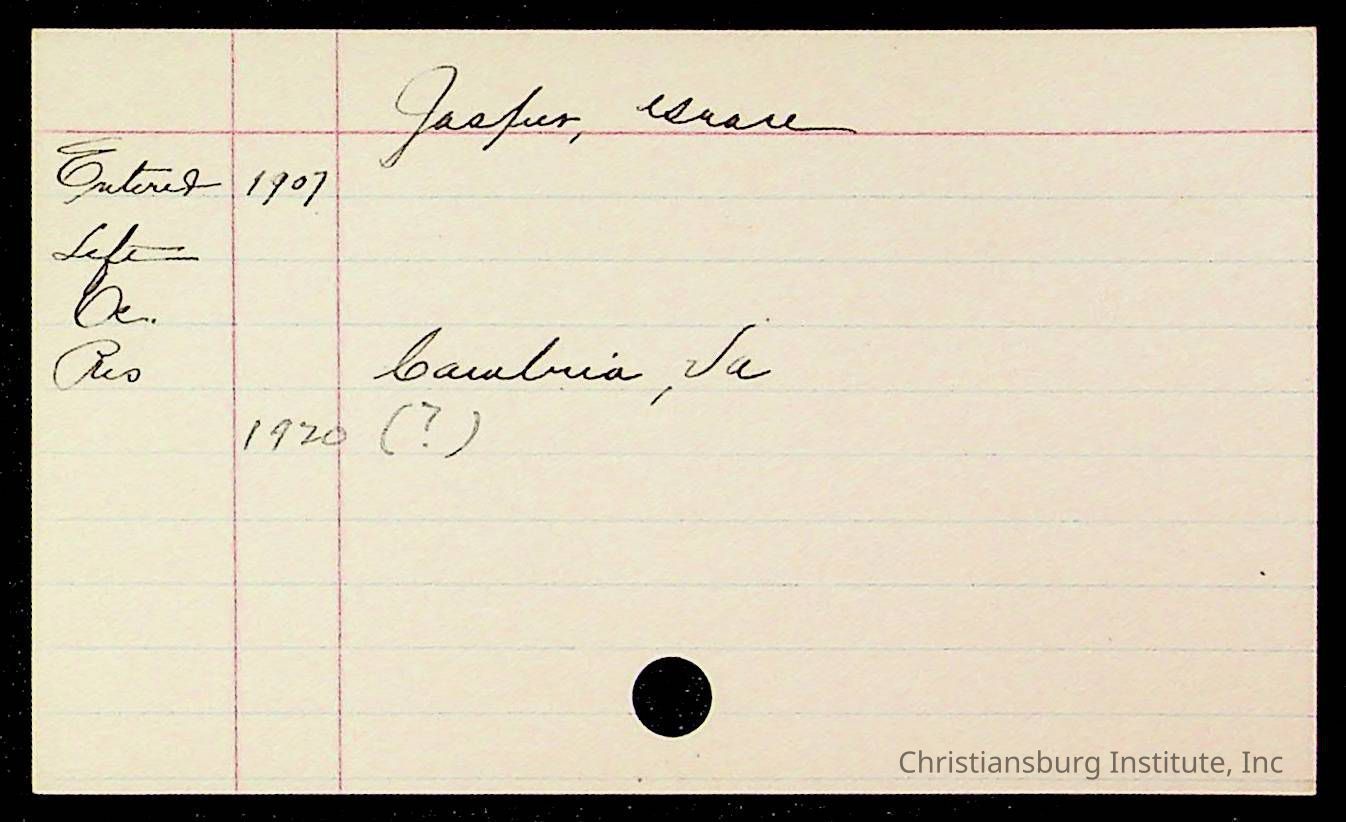 Jasper, Israel
Entered 1907
Left
Oc.
Res Cambria, Va
1920 (?)
Christiansburg Institute, Inc